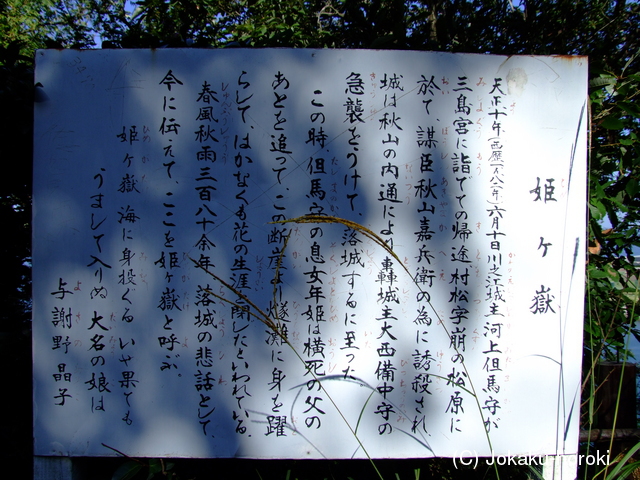 姫ヶ嶽
天正十年(西歴一五八二年)六月十日川之江城主河上但馬守が
三島宮に詣でての帰途村松字崩の松原に
於て、謀臣秋山嘉兵衛の為に誘殺され
城は秋山の内通により轟城主大西備中守の
急襲をうけて、落城するに至った
この時、但馬守の息女年姫は横死の父の
あとを追って、この断崖より燧灘に身を躍
らして、はかなくも花の生涯を閉したといわれている。
春風秋雨三百八十余年、落城の悲話として、
今に伝えて、ここを姫ヶ嶽と呼ぶ。
姫ヶ嶽海に身投ぐるいや果ても
うまして入りぬ大名の娘は
与謝野晶子
(C) Jokaku-horoki